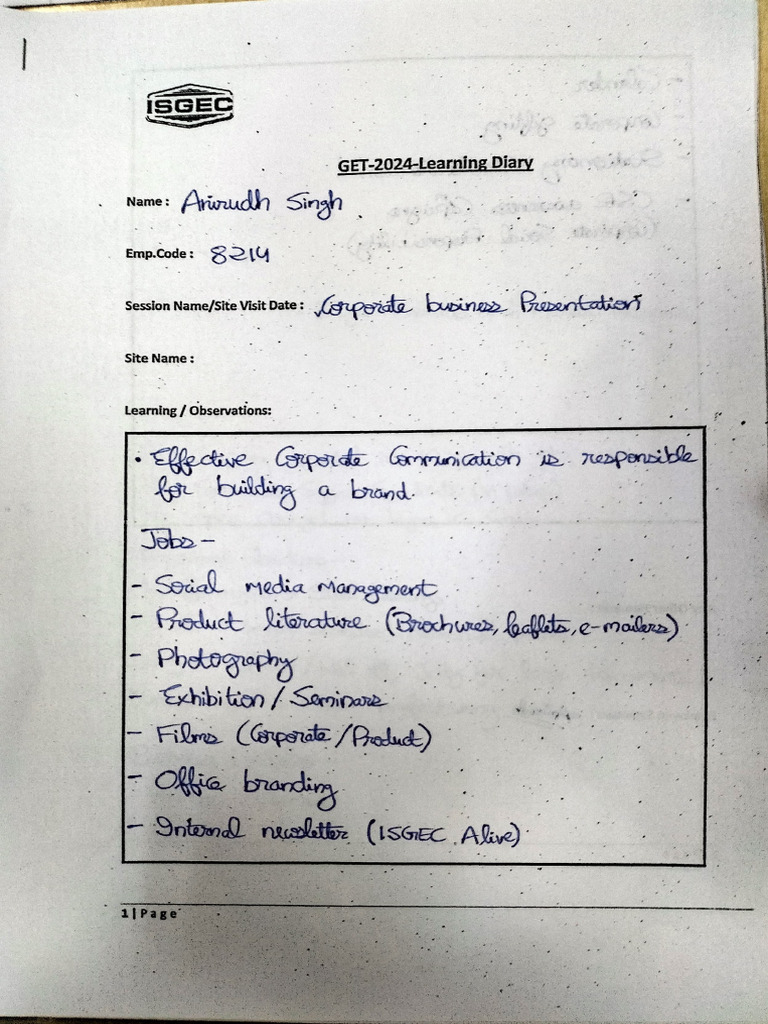 ISGEC
GET-2024-Learning Diary
Name : Anirudh Singh
Emp.Code : 8214
Session Name/Site Visit Date : Corporate business Presentation
Site Name :
Learning / Observations:
• Effective Corporate Communication is responsible
for building a brand.
Jobs -
- Social media management
- Product literature (Brochures, leaflets, e-mailers)
- Photography
- Exhibition / Seminars
- Films (Corporate / Product)
- Office branding
- Internal newsletter (ISGEC Alive)
1 | Page